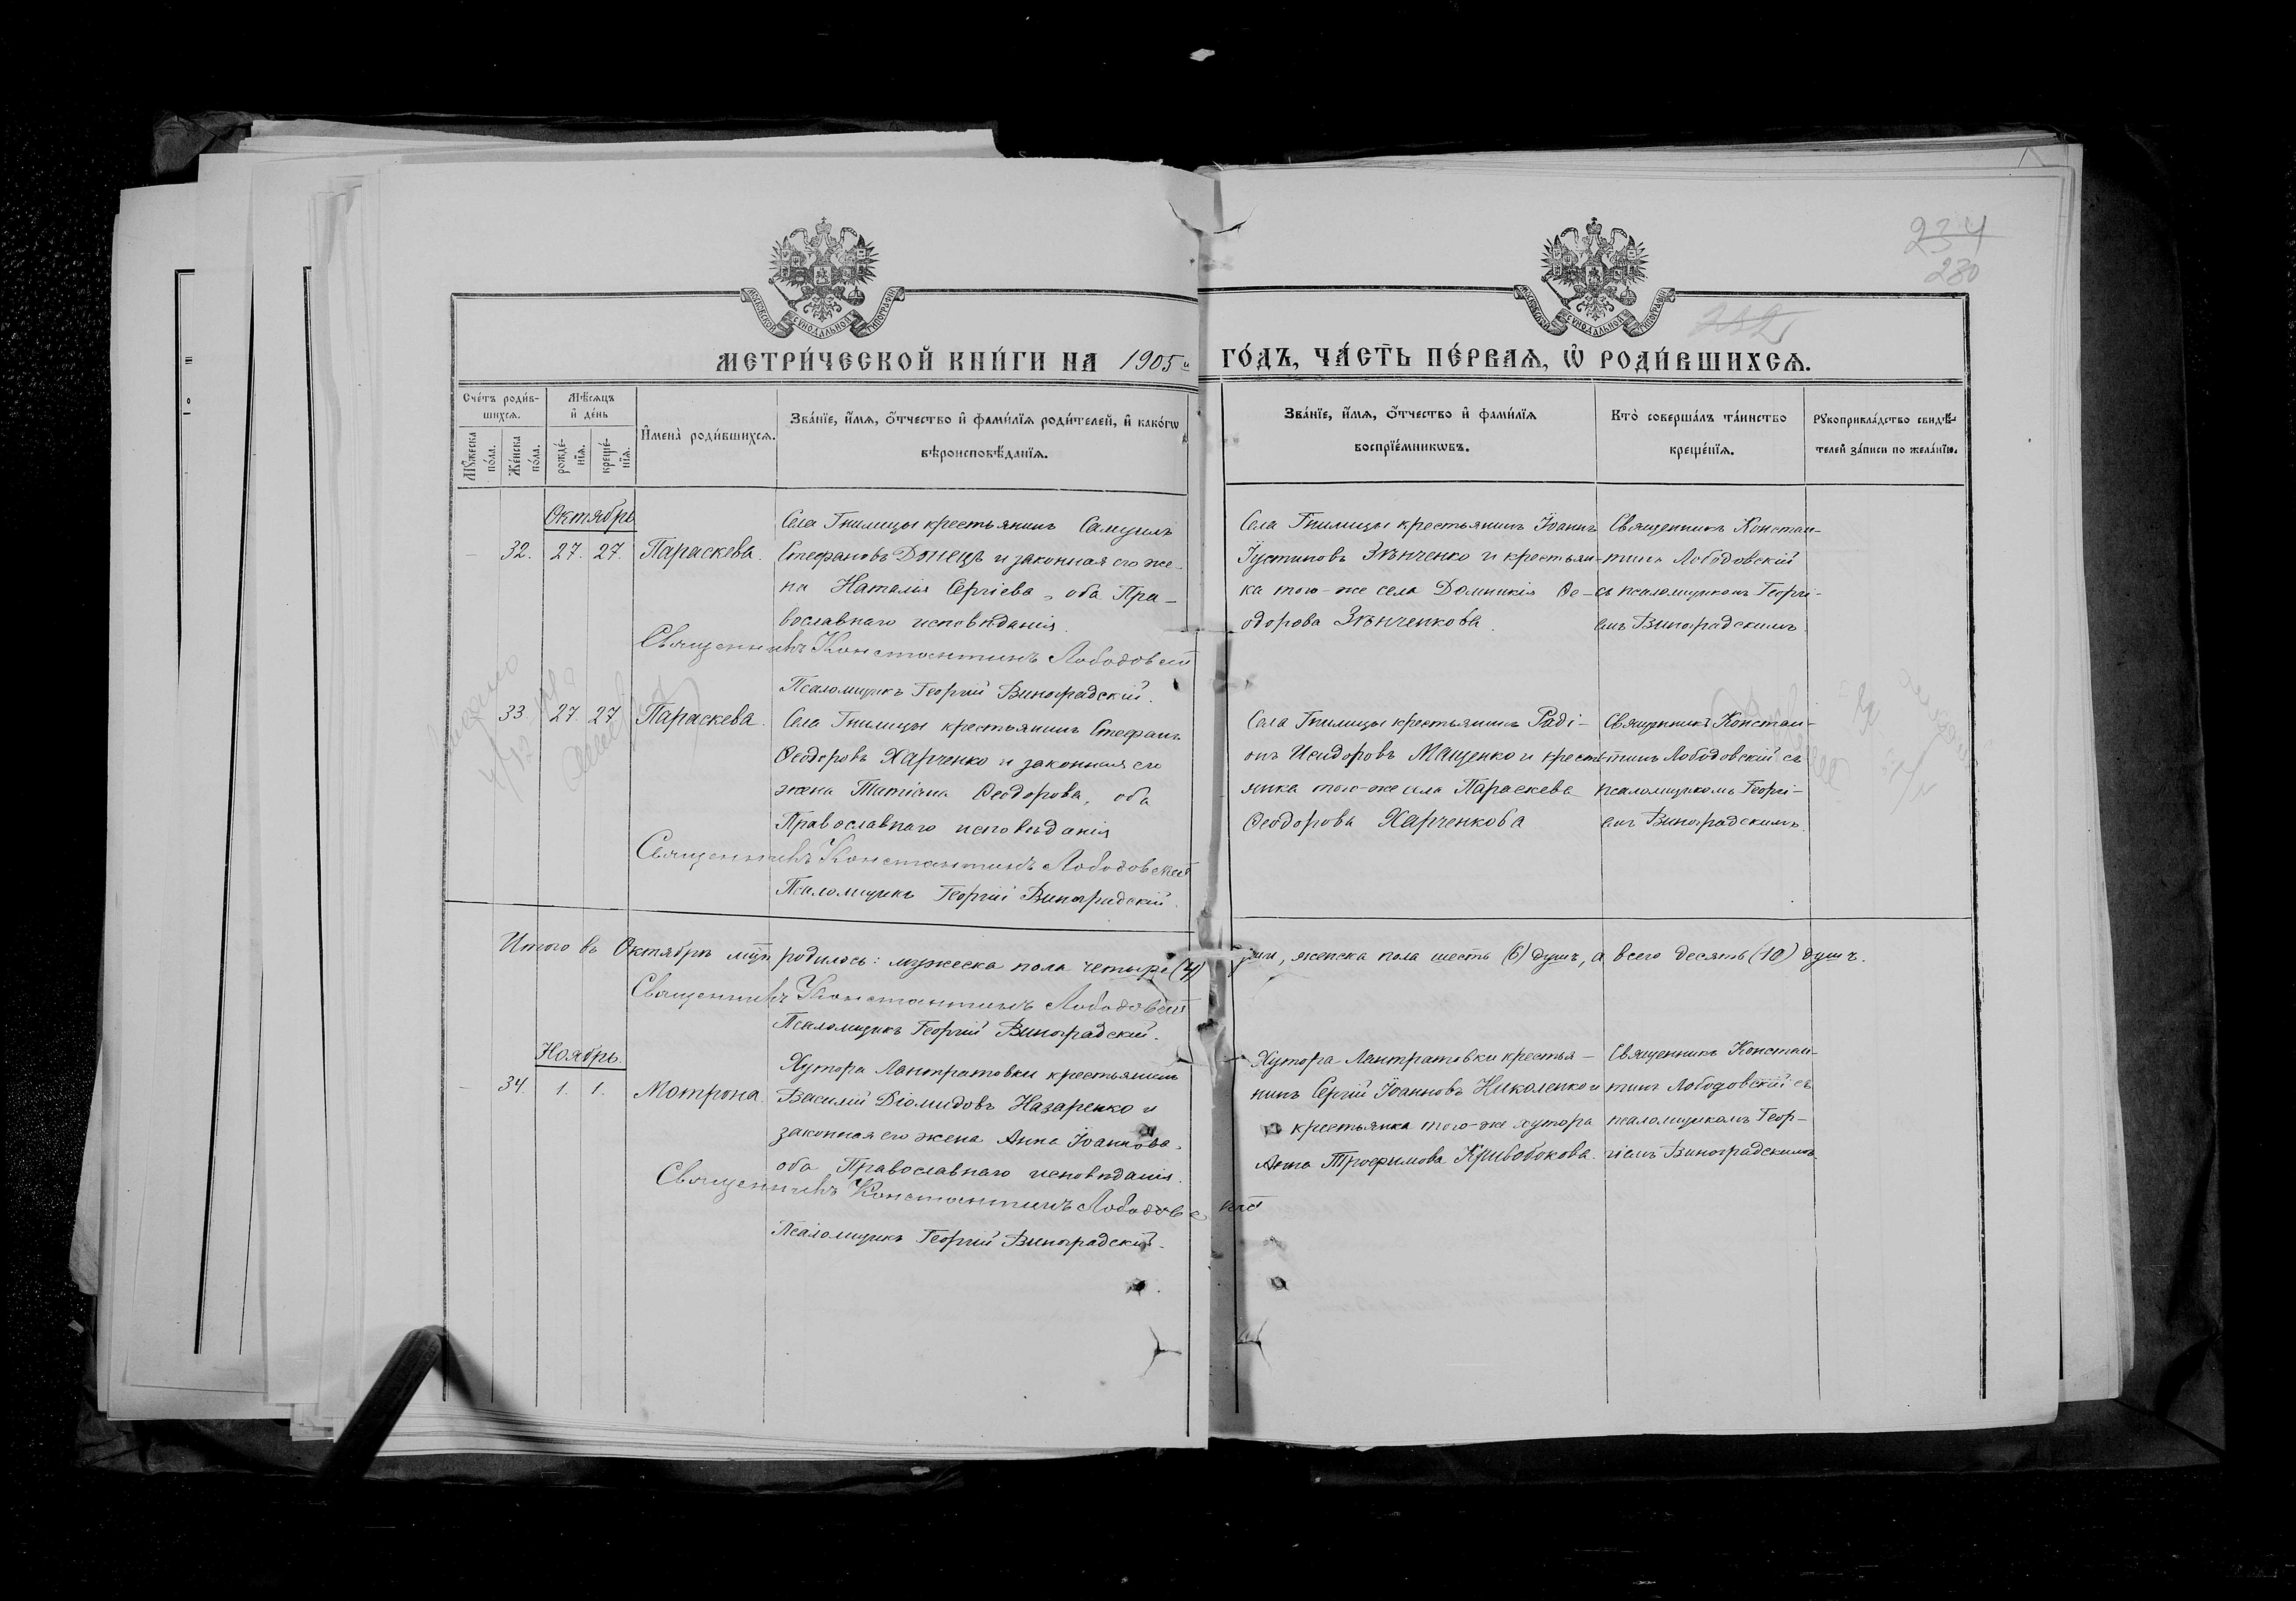 234
280
232
МОСКОВСКОЙ СѴНОДАЛЬНОЙ ТИПОГРАФІИ
МОСКОВСКОЙ СѴНОДАЛЬНОЙ ТИПОГРАФІИ
МЕТРИ́ЧЕСКОЙ КНИ́ГИ НА 1905й ГО́ДЪ, ЧА́СТЬ ПЕ́РВАЯ, Ѡ҆ РОДИ́ВШИХСѦ.
Сче́тъ роди́в-
шихсѧ.
Мꙋ́жеска по́ла.
Же́нска по́ла.
Мѣ́сѧцъ
и҆ де́нь
рожде́-
нїѧ.
креще́-
нїѧ.
И҆мена̀ роди́вшихсѧ.
Зва́нїе, и҆́мѧ, ѻ҆́тчество и҆ фами́лїѧ роди́телей, и҆ како́гѡ
вѣроисповѣ́данїѧ.
Зва́нїе, и҆́мѧ, ѻ҆́тчество и҆ фами́лїѧ
воспрїе́мникѡвъ.
Кто̀ соверша́лъ та́инство
креще́нїѧ.
Рꙋкоприкла́дство свидѣ́-
телей за́писи по жела́нїю.
Октябрь
32. 27. 27. Параскева.
Села Гнилицы крестьянинъ Самуилъ
Стефановъ Донецъ и законная его же-
на Наталія Сергіева, оба Пра-
вославнаго исповѣданія.
Священникъ Константинъ Лободовскій
Псаломщикъ Георгій Виноградскій.
Села Гнилицы крестьянинъ Іоаннъ
Іустиновъ Зѣнченко и крестьян-
ка того-же села Домникія Ѳе-
одорова Зѣнченкова.
Священникъ Констан-
тинъ Лободовскій
съ псаломщикомъ Георгі-
емъ Виноградскимъ.
33 27. 27 Параскева.
Села Гнилицы крестьянинъ Стефанъ
Ѳеодоровъ Харченко и законная его
жена Татіана Ѳеодорова, оба
Православнаго исповѣданія
Священникъ Константинъ Лободовскій
Псаломщикъ Георгій Виноградскій.
Села Гнилицы крестьянинъ Раді-
онъ Исидоровъ Мащенко и кресть-
янка того-же села Параскева
Ѳеодорова Харченкова
Священникъ Констан-
тинъ Лободовскій съ
псаломщикомъ Георгі-
емъ Виноградскимъ.
Итого въ Октябрѣ мцѣ родилось: мужеска пола четыре (4) души, женска пола шесть (6) душъ, а всего десять (10) душъ.
Священникъ Константинъ Лободовскій
Псаломщикъ Георгій Виноградскій.
Ноябрь.
34. 1. 1. Мотрона.
Хутора Лантратовки крестьянинъ
Василій Діомидовъ Назаренко и
законная его жена Анна Іоаннова,
оба Православнаго исповѣданія.
Священникъ Константинъ Лободовскій
Псаломщикъ Георгій Виноградскій.
Хутора Лантратовки крестья-
нинъ Сергій Іоанновъ Николенко и
крестьянка того-же хутора
Анна Трофимова Кривобокова.
Священникъ Констан-
тинъ Лободовскій съ
псаломщикомъ Геор-
гіемъ Виноградскимъ.